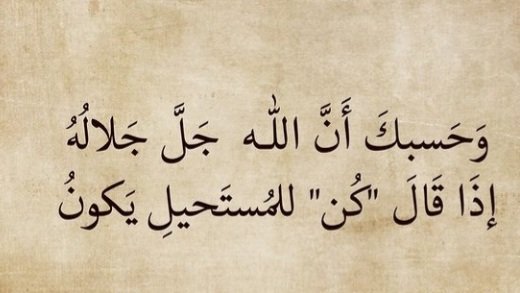 وَحَسبكَ أَنَّ اللّٰـه جَلَّ جَلالُهُ
إذَا قَالَ "كُن" للمُستَحيلِ يَكونُ